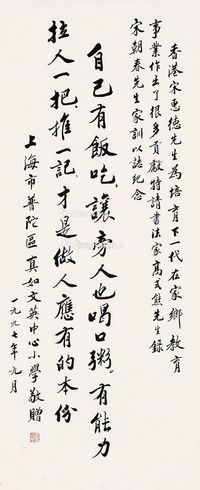 香港宋惠德先生為培育下一代在家鄉教育
事業作出了很多貢獻特請書法家高式熊先生錄
宋朝泰先生家訓以誌紀念
自己有飯吃，讓旁人也喝口粥，有能力
拉人一把，推一記，才是做人應有的本份
上海市普陀區真如文英中心小學敬贈
一九九七年九月